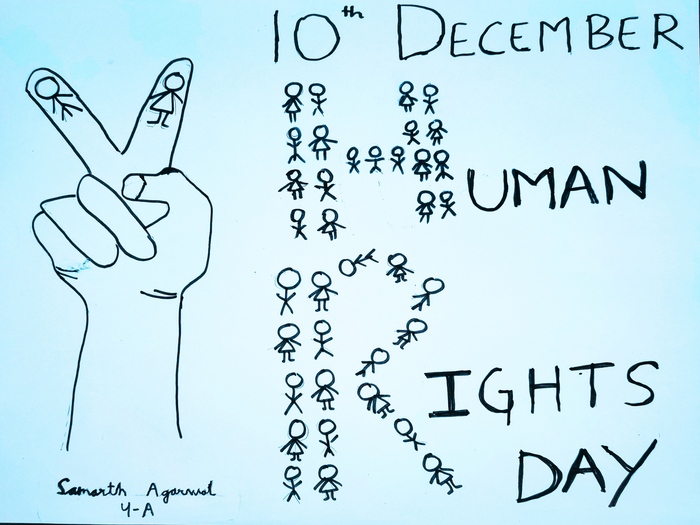 10th DECEMBER
HUMAN
RIGHTS
DAY
Samarth Agarwal
4-A